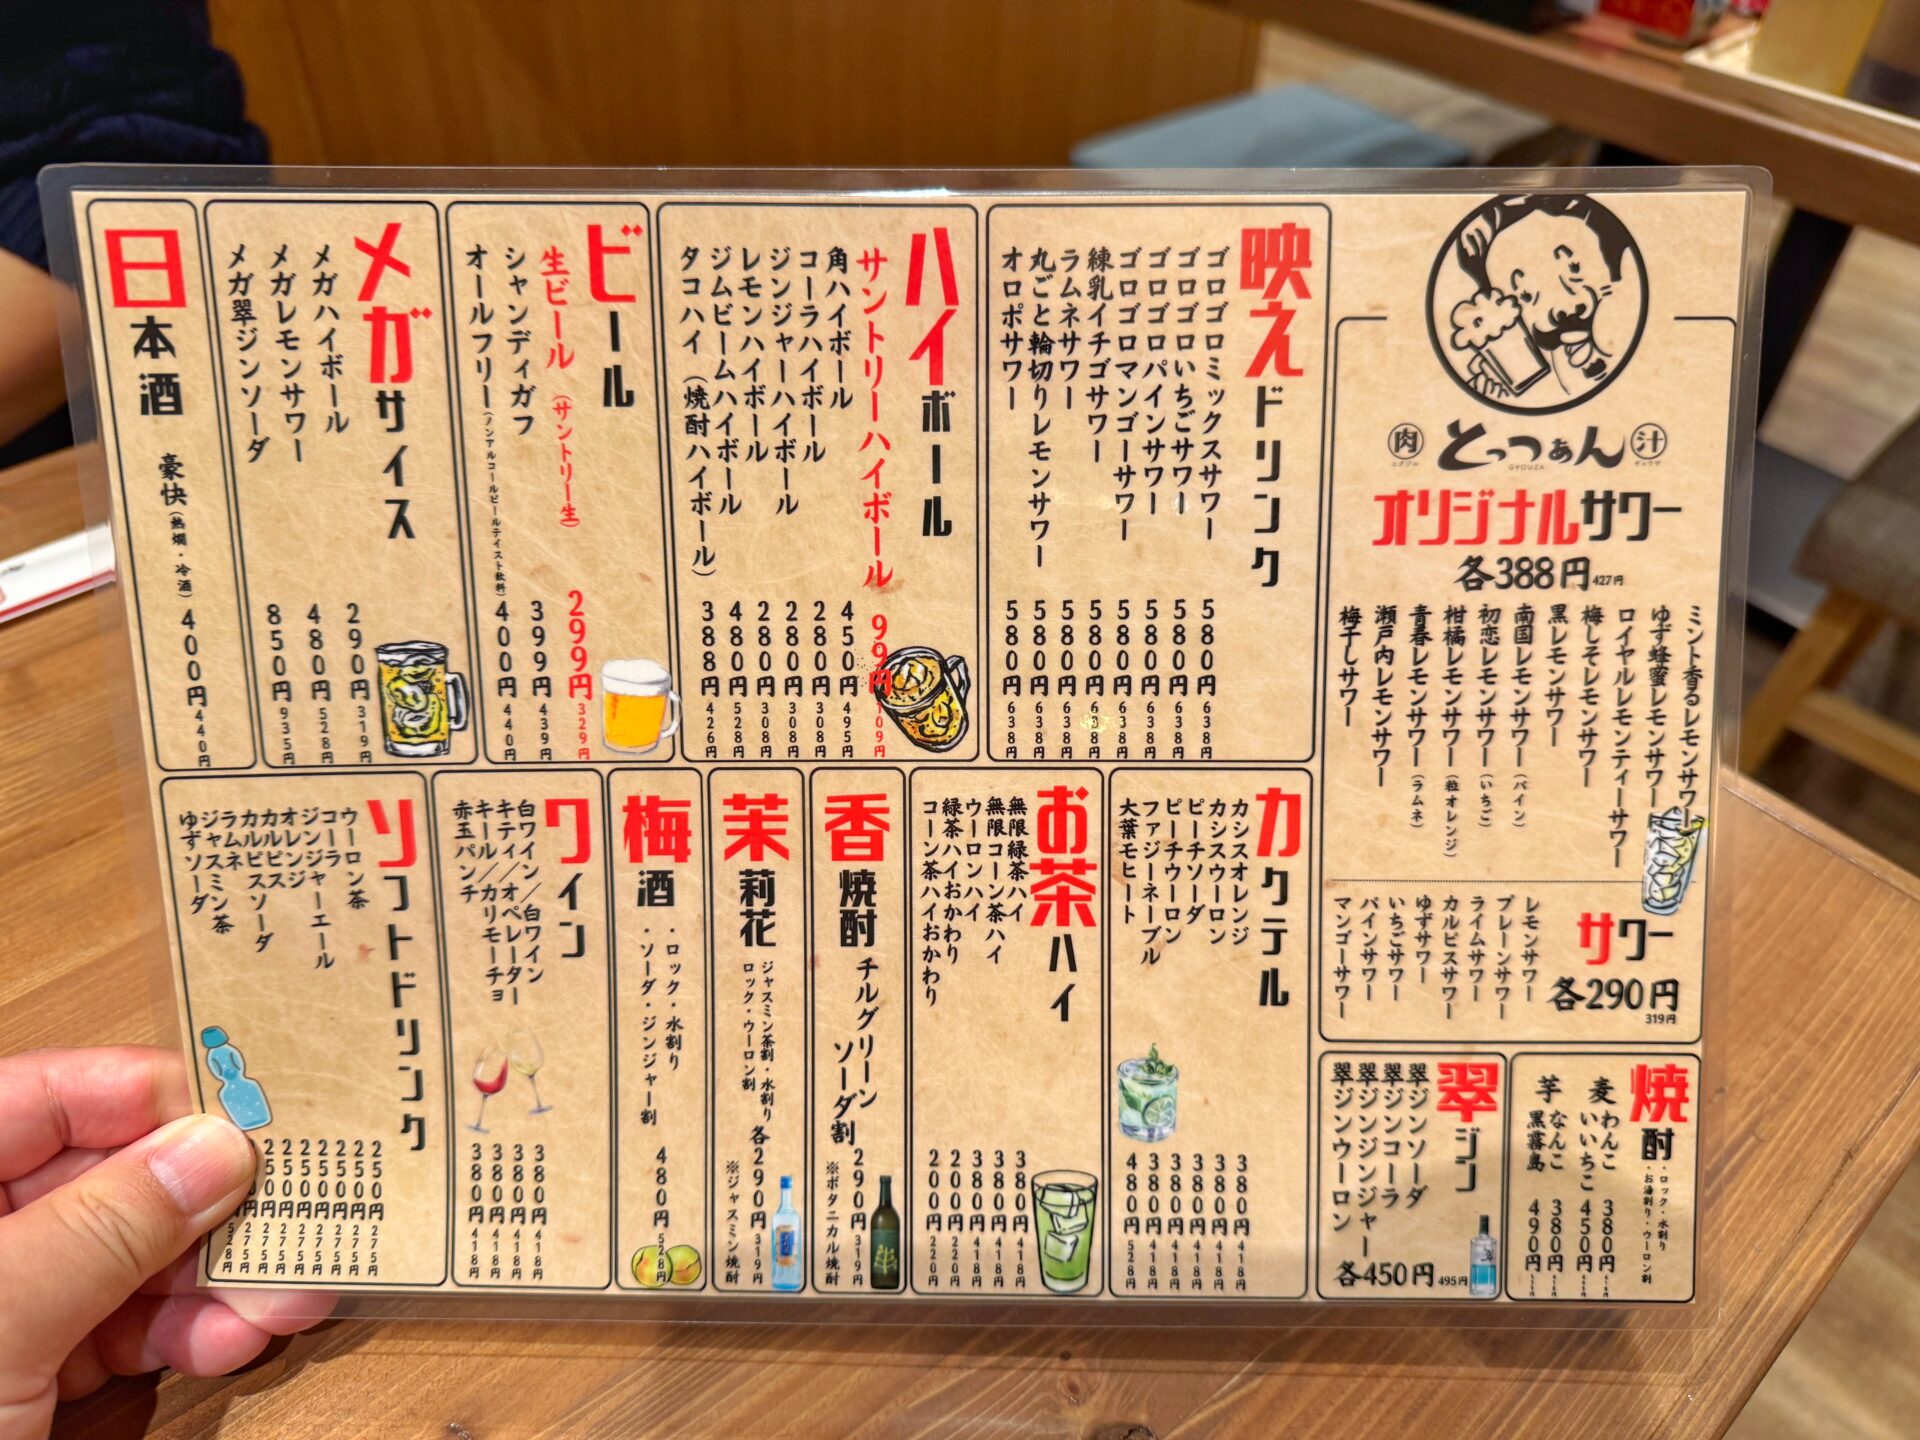 肉 とっつぁん 汁
ニクジル GYOUZA ギョウザ
オリジナルサワー
各388円 427円
ミント香るレモンサワー
ゆず蜂蜜レモンサワー
ロイヤルレモンティーサワー
梅しそレモンサワー
黒レモンサワー
南国レモンサワー(パイン)
初恋レモンサワー(いちご)
柑橘レモンサワー(粒オレンジ)
青春レモンサワー(ラムネ)
瀬戸内レモンサワー
梅干しサワー
サワー
各290円
319円
レモンサワー
プレーンサワー
ライムサワー
カルピスサワー
ゆずサワー
いちごサワー
パインサワー
マンゴーサワー
焼酎 ・ロック・水割り
・お湯割り・ウーロン割
麦 わんこ 380円
いいちこ 450円
芋 なんこ 380円
黒霧島 490円
翠ジン
翠ジンソーダ
翠ジンコーラ
翠ジンジンジャー
翠ジンウーロン
各450円 495円
映えドリンク
ゴロゴロミックスサワー 580円 638円
ゴロゴロいちごサワー 580円 638円
ゴロゴロパインサワー 580円 638円
ゴロゴロマンゴーサワー 580円 638円
練乳イチゴサワー 580円 638円
ラムネサワー 580円 638円
丸ごと輪切りレモンサワー 580円 638円
オロポサワー 580円 638円
ハイボール
サントリーハイボール 99円 109円
角ハイボール 450円 495円
コーラハイボール 280円 308円
ジンジャーハイボール 280円 308円
レモンハイボール 280円 308円
ジムビームハイボール 480円 528円
タコハイ(焼酎ハイボール) 388円 426円
ビール
生ビール(サントリー生) 299円 329円
シャンディガフ 399円 439円
オールフリー(ノンアルコールビールテイスト飲料) 400円 440円
メガサイズ
メガハイボール 290円 319円
メガレモンサワー 480円 528円
メガ翠ジンソーダ 850円 935円
日本酒
豪快(熱燗・冷酒) 400円 440円
カクテル
カシスオレンジ 380円 418円
カシスウーロン 380円 418円
ピーチソーダ 380円 418円
ピーチウーロン 380円 418円
ファジーネーブル 380円 418円
大葉モヒート 480円 528円
お茶ハイ
無限緑茶ハイ 380円 418円
無限コーン茶ハイ 380円 418円
ウーロンハイ 380円 418円
緑茶ハイおかわり 200円 220円
コーン茶ハイおかわり 200円 220円
香焼酎
チルグリーン
ソーダ割
290円 319円
※ボタニカル焼酎
茉莉花
ジャスミン茶割・水割り
ロック・ウーロン割
各290円 319円
※ジャスミン焼酎
梅酒
・ロック・水割り
・ソーダ・ジンジャー割
480円 528円
ワイン
白ワイン/白ワイン 380円 418円
キティ/オペレーター 380円 418円
キール/カリモーチョ 380円 418円
赤玉パンチ 380円 418円
ソフトドリンク
ウーロン茶 250円 275円
コーラ 250円 275円
ジンジャーエール 250円 275円
オレンジ 250円 275円
カルピス 250円 275円
カルピスソーダ 250円 275円
ラムネ 250円 275円
ジャスミン茶
ゆずソーダ 528円